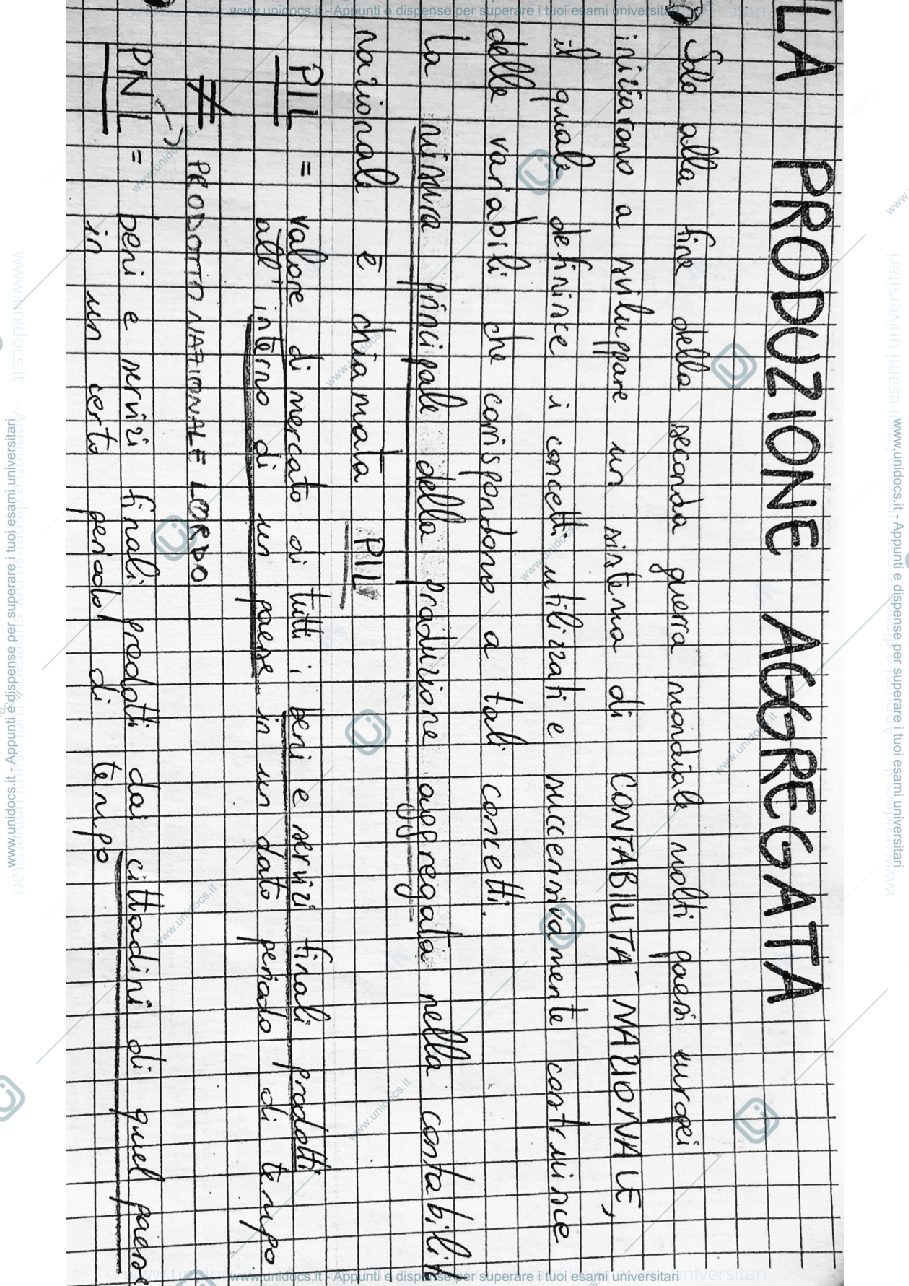 LA PRODUZIONE AGGREGATA
Solo alla fine della seconda guerra mondiale molti paesi europei
iniziarono a sviluppare un sistema di CONTABILITA' NAZIONALE,
il quale definisce i concetti utilizzati e successivamente costruisce
delle variabili che corrispondono a tali concetti.
La misura principale della produzione aggregata nella contabilit
nazionale è chiamata PIL
PIL = valore di mercato di tutti i beni e servizi finali prodotti
all' interno di un paese in un dato periodo di tempo
≠ PRODOTTO NAZIONALE LORDO
PNL = beni e servizi finali prodotti dai cittadini di quel paese
in un certo periodo di tempo
www.unidocs.it - Appunti e dispense per superare i tuoi esami universitari
www.unidocs.it - Appunti e dispense per superare i tuoi esami universitari
www.unidocs.it - Appunti e dispense per superare i tuoi esami universitari
www.unidocs.it - Appunti e dispense per superare i tuoi esami universitari